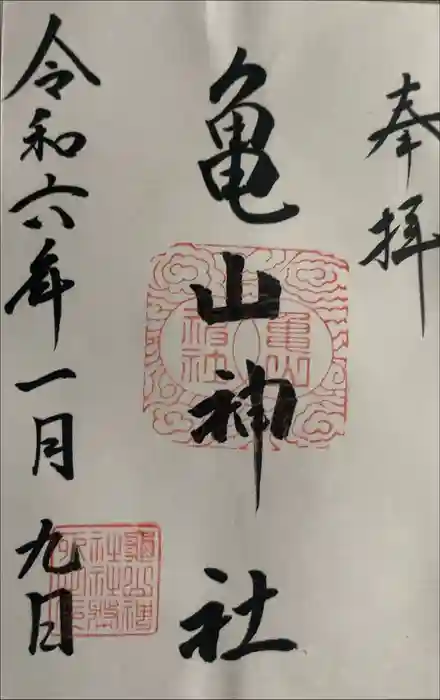 奉拝
亀山神社
亀山
神社
令和六年一月九日